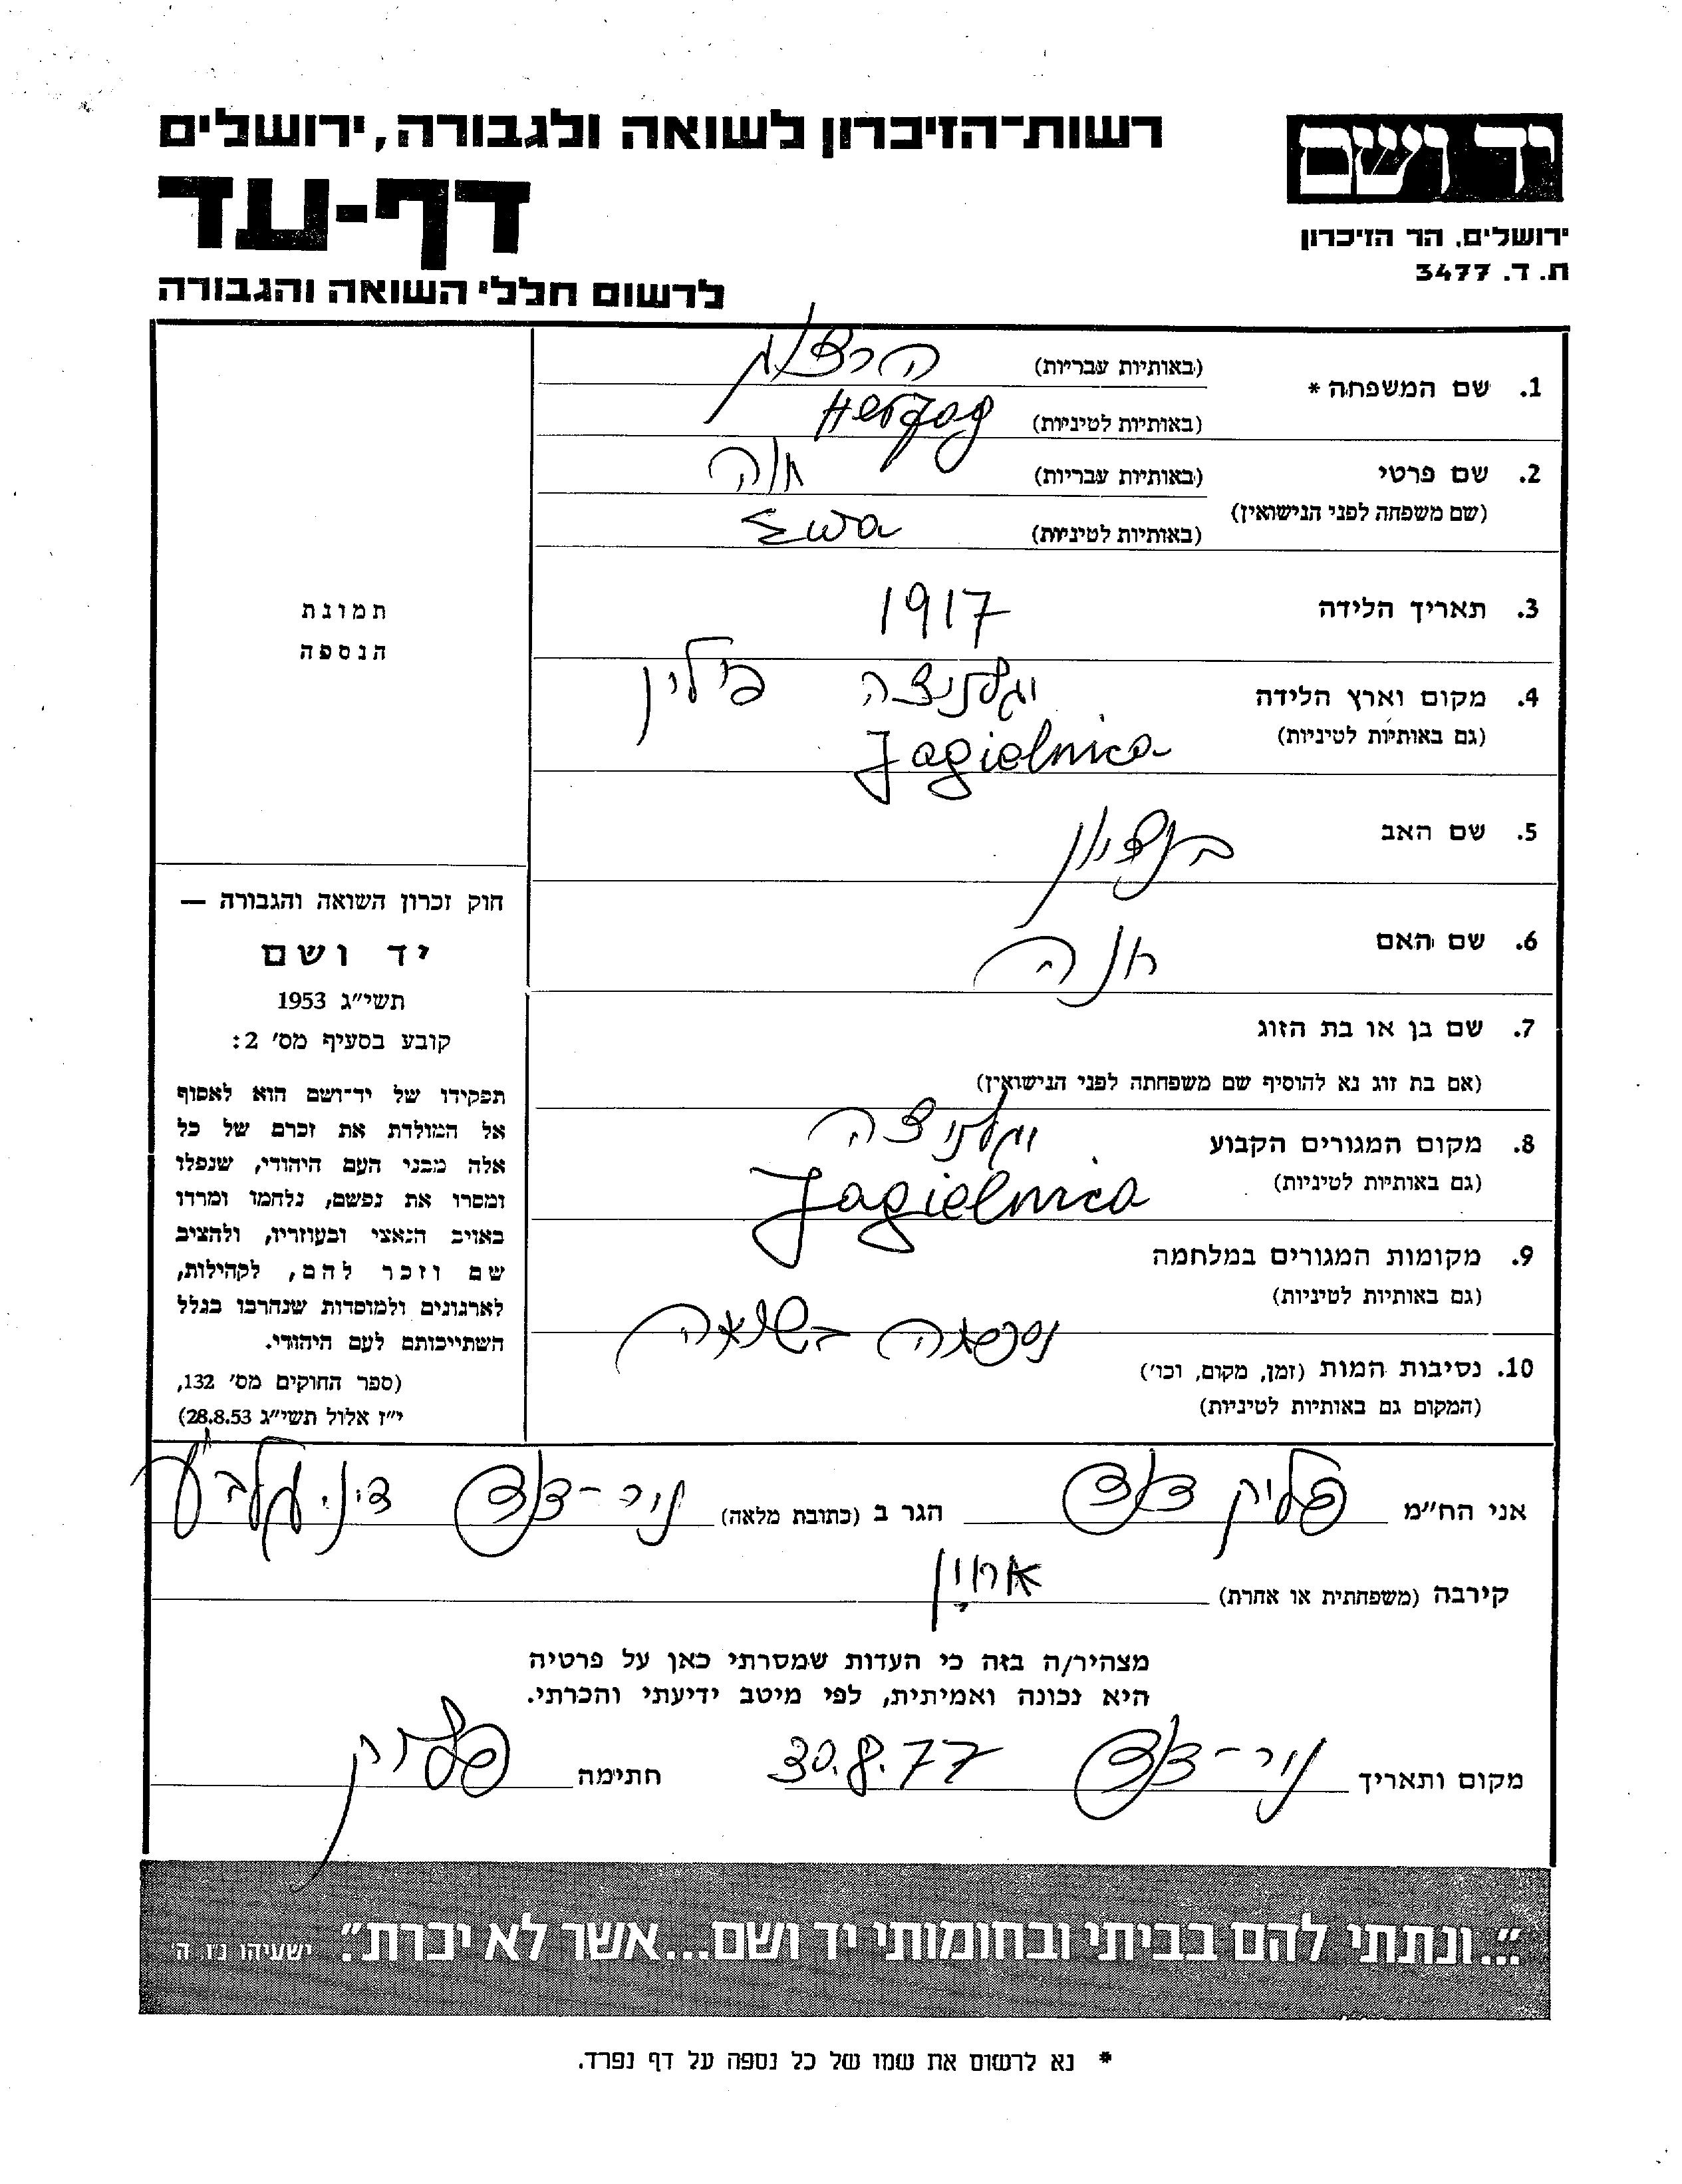 יד ושם
ירושלים. הר הזיכרון
ת. ד. 3477
רשות־הזיכרון לשואה ולגבורה, ירושלים
דף-עד
לרשום חללי השואה והגבורה
1. שם המשפחה * (באותיות עבריות) הרצוג
(באותיות לטיניות) Herzog
2. שם פרטי (באותיות עבריות) חוה
(שם משפחה לפני הנישואין) (באותיות לטיניות) Ewa
3. תאריך הלידה 1917
4. מקום וארץ הלידה יגלניצה פולין
(גם באותיות לטיניות) Jagielnica
5. שם האב בנציון
6. שם האם חנה
7. שם בן או בת הזוג
(אם בת זוג נא להוסיף שם משפחתה לפני הנישואין)
8. מקום המגורים הקבוע יגלניצה
(גם באותיות לטיניות) Jagielnica
9. מקומות המגורים במלחמה
(גם באותיות לטיניות)
10. נסיבות המות (זמן, מקום, וכו') נספתה בשואה
(המקום גם באותיות לטיניות)
תמונת
הנספה
חוק זכרון השואה והגבורה —
יד ושם
תשי"ג 1953
קובע בסעיף מס' 2:
תפקידו של יד־ושם הוא לאסוף
אל המולדת את זכרם של כל
אלה מבני העם היהודי, שנפלו
ומסרו את נפשם, נלחמו ומרדו
באויב הנאצי ובעוזריו, ולהציב
שם וזכר להם, לקהילות,
לארגונים ולמוסדות שנהרבו בגלל
השתייכותם לעם היהודי.
(ספר החוקים מס' 132,
י"ז אלול תשי"ג 28.8.53)
אני הח"מ פליק דוד הגר ב (כתובת מלאה) ניר-דוד
קירבה (משפחתית או אחרת) אחיין
מצהיר/ה בזה כי העדות שמסרתי כאן על פרטיה
היא נכונה ואמיתית, לפי מיטב ידיעתי והכרתי.
מקום ותאריך ניר-דוד 30.8.77 חתימה פליק
"...ונתתי להם בביתי ובחומותי יד ושם...אשר לא יכרת". ישעיהו נ"ו. ה'
* נא לרשום את שמו של כל נספה על דף נפרד.